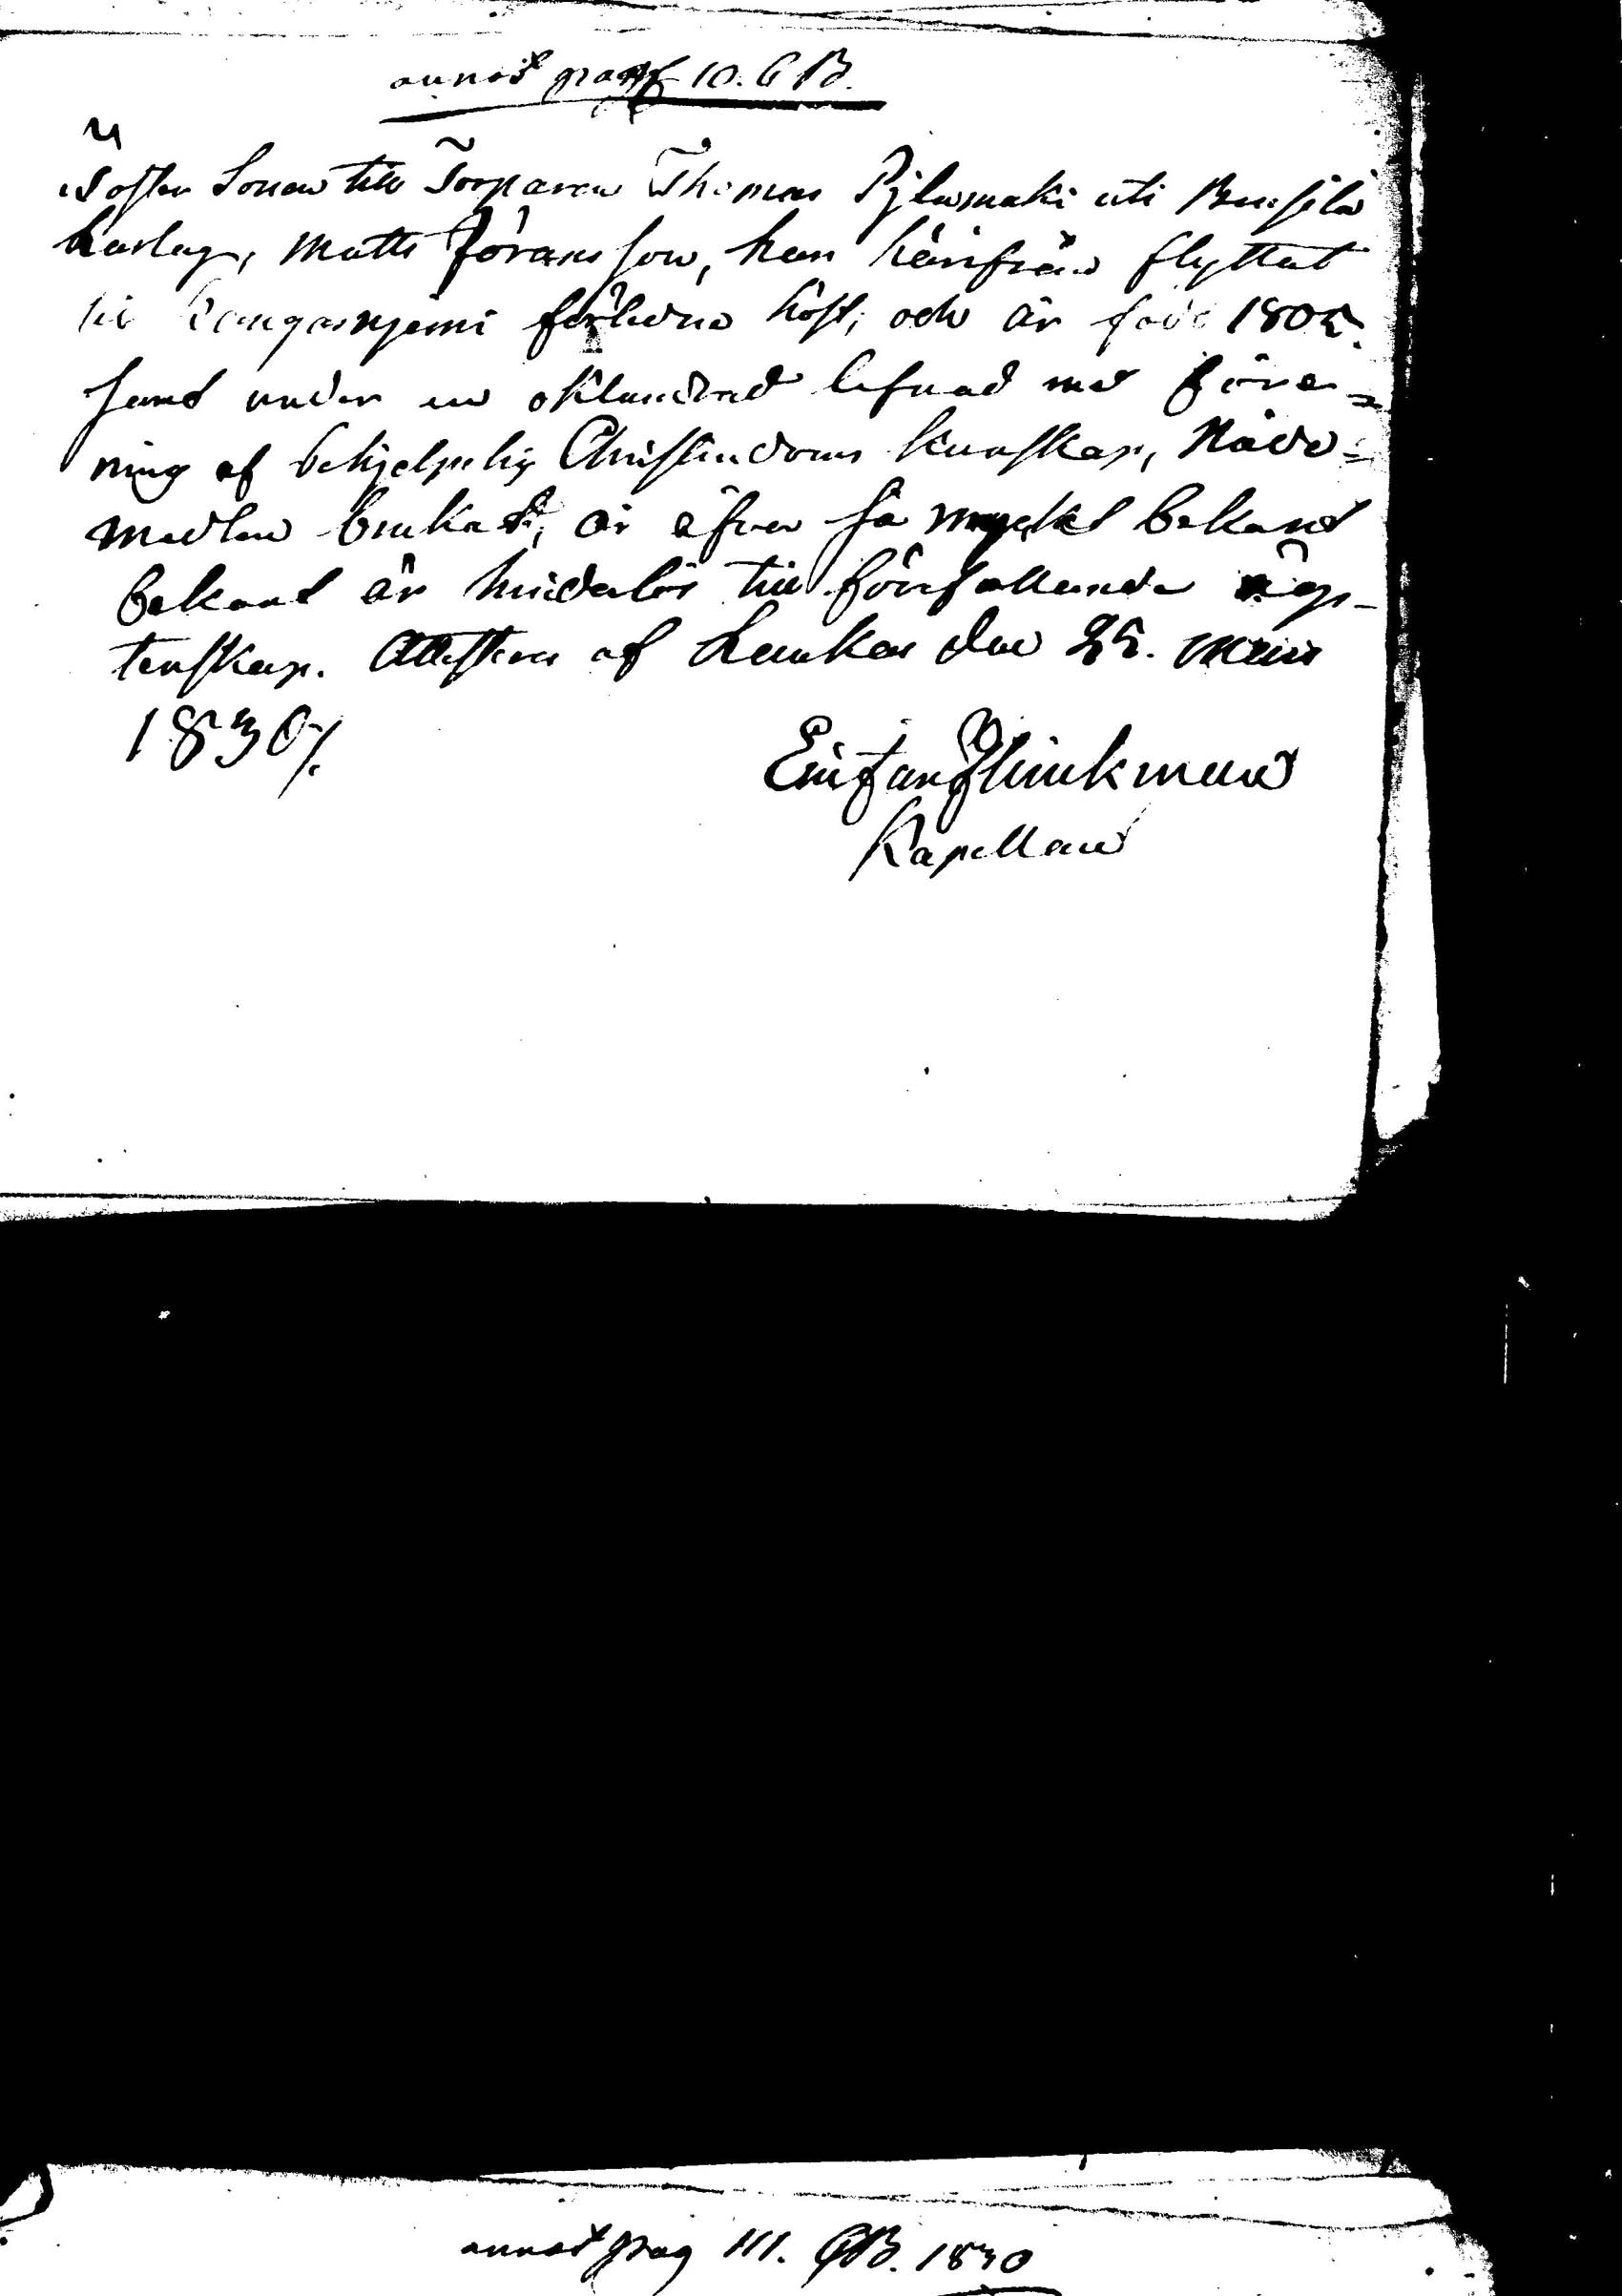 annot pag 10. C B.
Hosten Sonen till Torparen Thomas Pylwmäki uti
harlag, Matts Göransson, har härifrån flyttat
till Kangasnjemi förledne höst, och är född 1805.
samt under en oklandrad lefnad med före=
ning af behjelpelig Christendoms kunskap, Nåde=
medlen brukat, är äfven så myckt bekant
bekant är hinderlös till förefallande ägs-
tenskap. Attesteras af Laukas den 25. Maii
1830/.
Flinkman
Kapellan
annot pag 111. CB. 1830